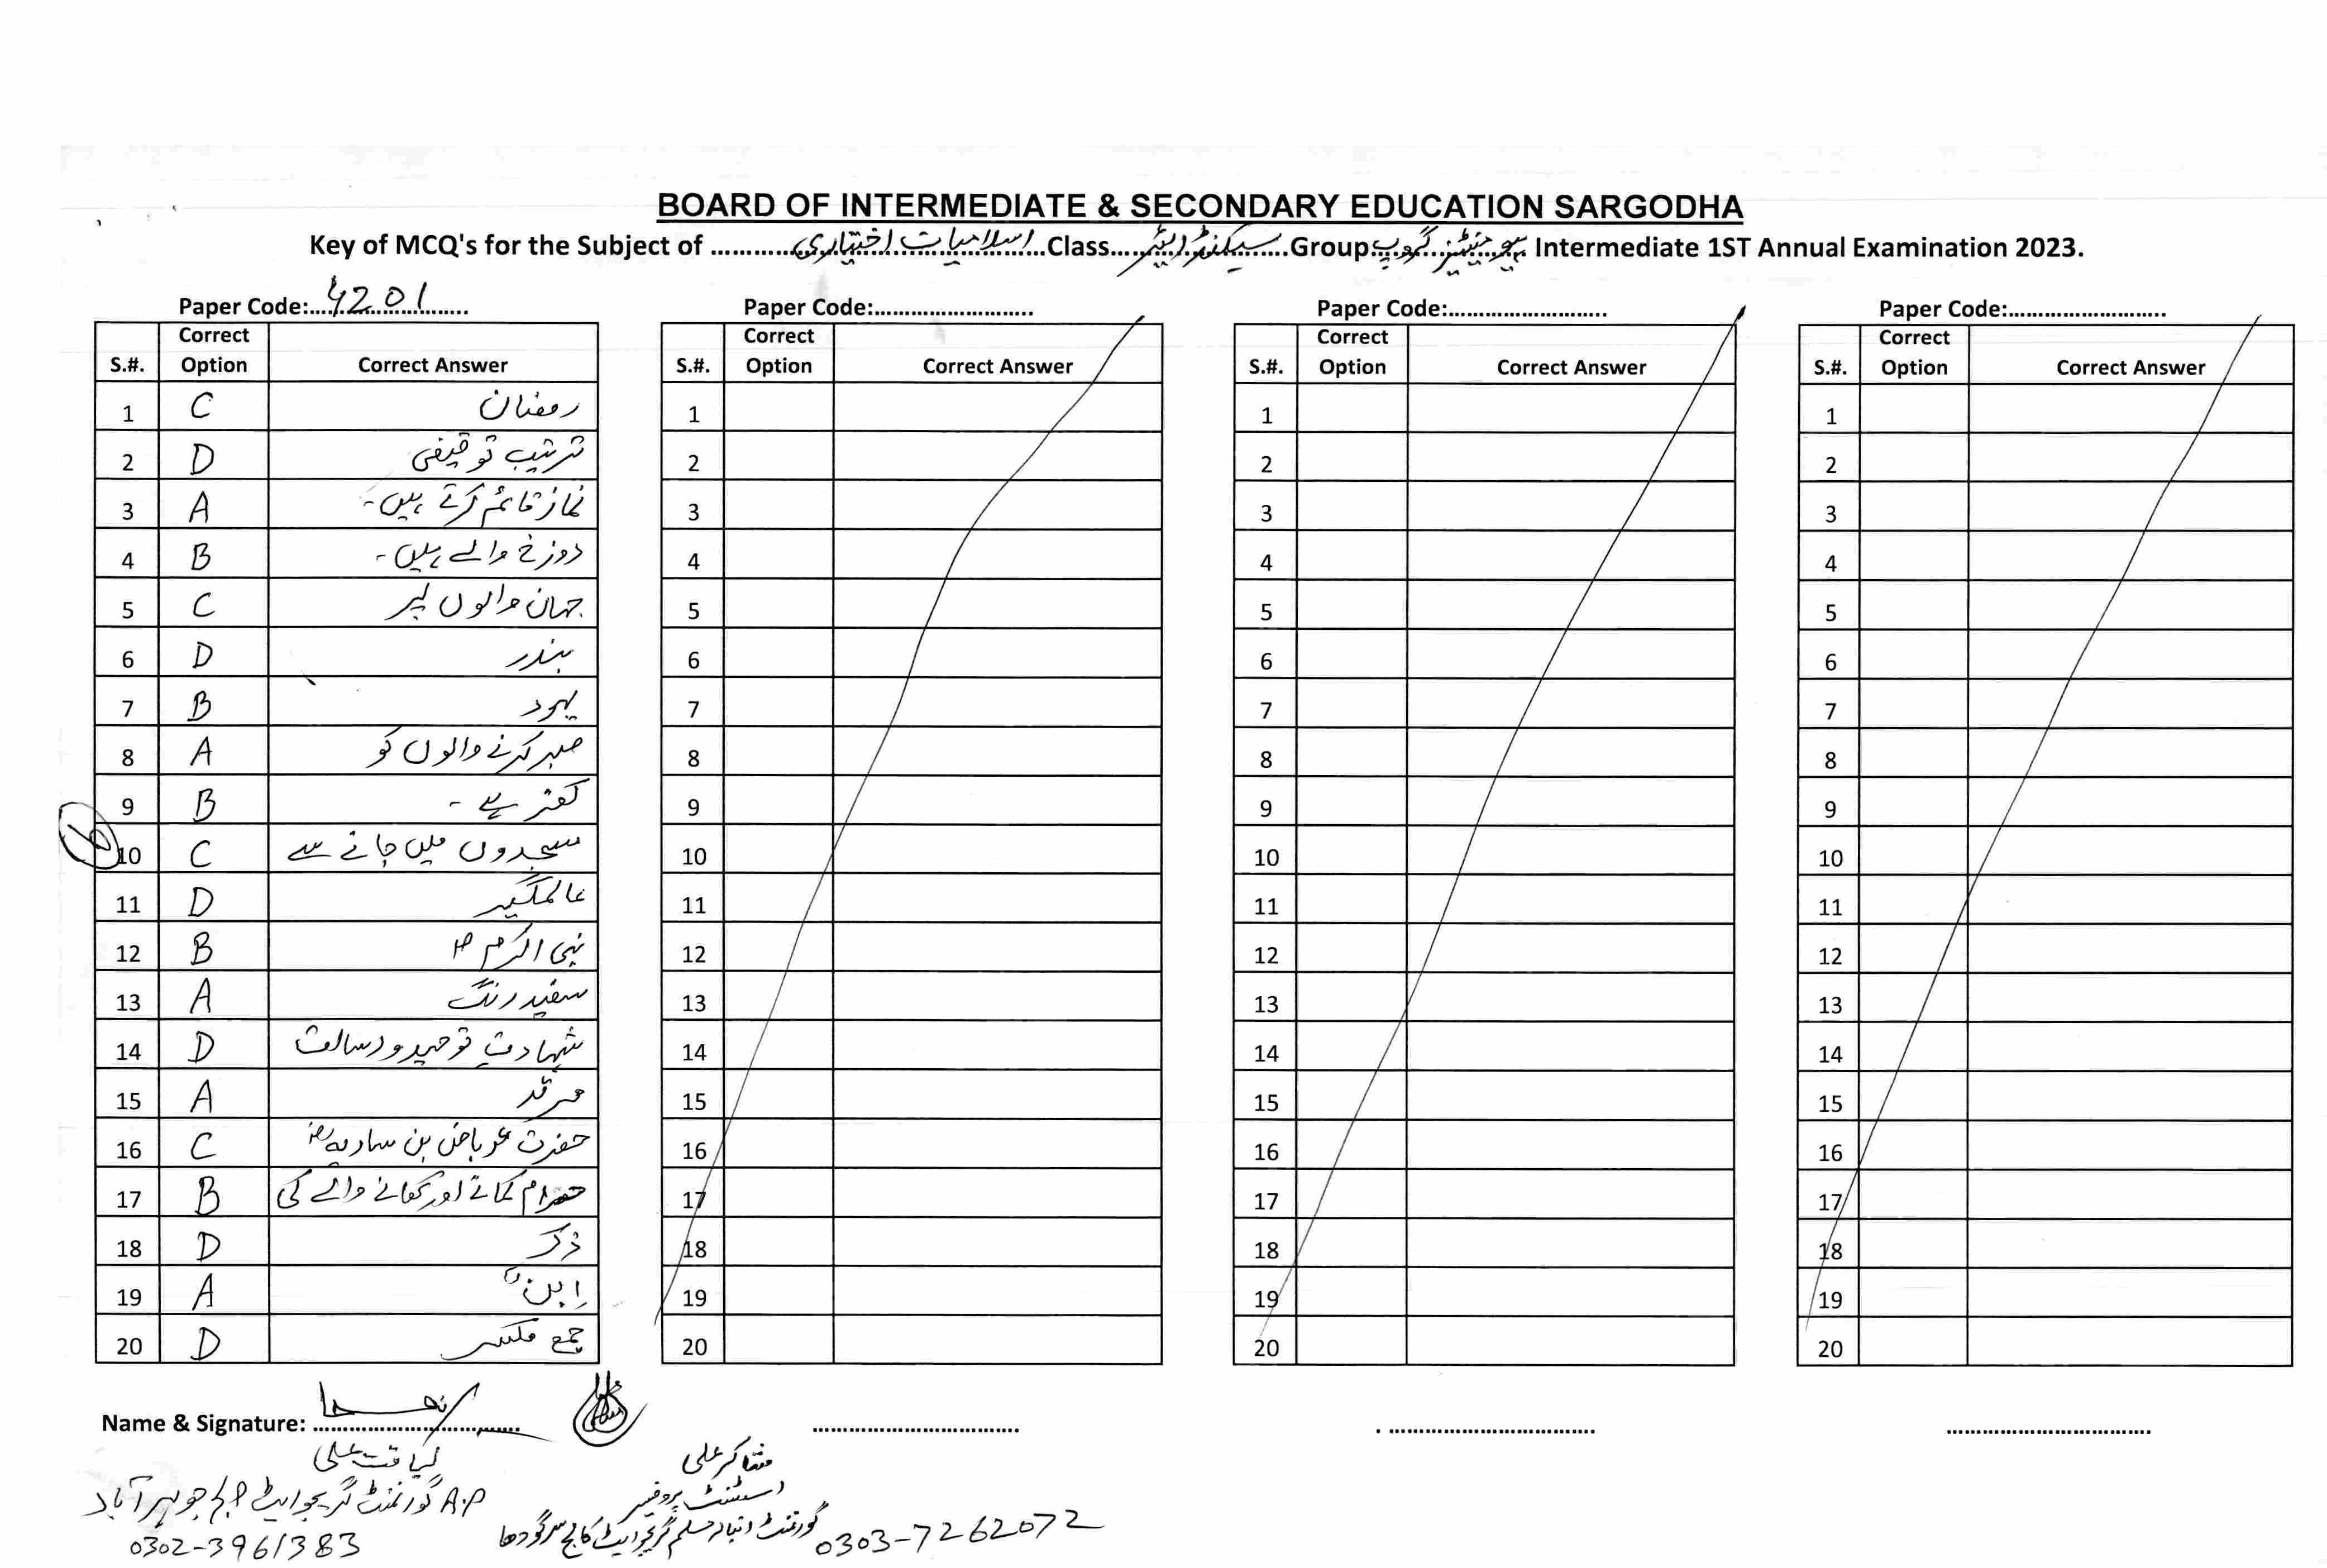 BOARD OF INTERMEDIATE & SECONDARY EDUCATION SARGODHA
Key of MCQ's for the Subject of ............اسلامیات اختیاری............Class......سیکنڈ ایئر......Group..ہیومینیٹیز گروپ.. Intermediate 1ST Annual Examination 2023.
Paper Code:....4201....
S.#. Correct Option Correct Answer
1 C رمضان
2 D ترتیب توقیفی
3 A نماز قائم کرتے ہیں۔
4 B دوزخ والے ہیں۔
5 C جہان والوں پر
6 D بندر
7 B یہود
8 A صبر کرنے والوں کو
9 B کفر ہے۔
10 C مسجدوں میں جانے سے
11 D عالمگیر
12 B نبی اکرمؐ
13 A سفید رنگ
14 D شہادتِ توحید و رسالت
15 A مرقد
16 C حضرت عرباض بن ساریہؓ
17 B حرام کمانے اور کھانے والے کی
18 D ذکر
19 A اِبن
20 D جمع مکسر
Paper Code:...........................
S.#. Correct Option Correct Answer
1
2
3
4
5
6
7
8
9
10
11
12
13
14
15
16
17
18
19
20
Paper Code:...........................
S.#. Correct Option Correct Answer
1
2
3
4
5
6
7
8
9
10
11
12
13
14
15
16
17
18
19
20
Paper Code:...........................
S.#. Correct Option Correct Answer
1
2
3
4
5
6
7
8
9
10
11
12
13
14
15
16
17
18
19
20
Name & Signature: ...................................
لیاقت علی
A.P گورنمنٹ گریجوایٹ کالج جوہرآباد
0302-3961383
شاکر علی
اسسٹنٹ پروفیسر
گورنمنٹ انبالہ مسلم گریجوایٹ کالج سرگودھا
0303-7262072